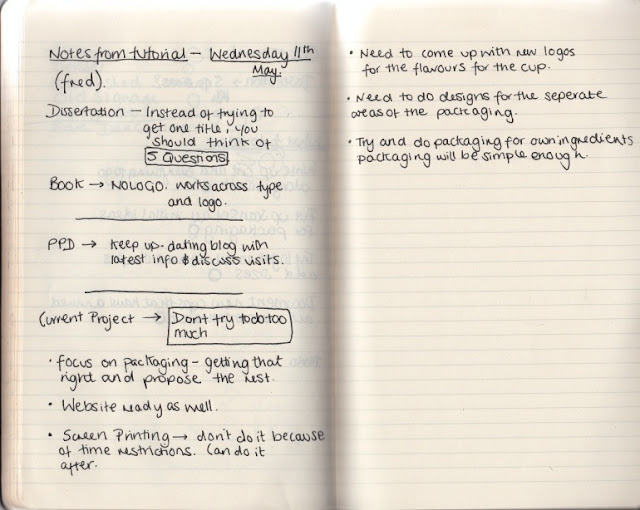 Notes from tutorial – Wednesday 11th
May.
(fred).
Dissertation – Instead of trying to
get one title, you
should think of
5 Questions
Book → NOLOGO. works across type
and logo.
PPD → Keep up-dating blog with
latest info & discuss visits.
Current Project → Dont try to do too
much
• focus on packaging – getting that
right and propose the rest.
• Website ready as well.
• Screen Printing → don't do it because
of time restrictions. Can do it
after.
• Need to come up with new logos
for the flavours for the cup.
• Need to do designs for the seperate
areas of the packaging.
• Try and do packaging for own ingredients
packaging will be simple enough.